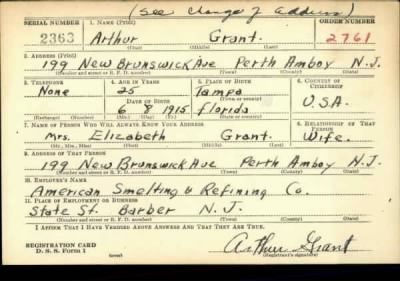 (See Change of Address)
SERIAL NUMBER 1. NAME (Print) ORDER NUMBER
2363 Arthur Grant. 2761
(First) (Middle) (Last)
2. ADDRESS (Print)
199 New Brunswick Ave Perth Amboy N.J.
(Number and street or R. F. D. number) (Town) (County) (State)
3. TELEPHONE 4. AGE IN YEARS 5. PLACE OF BIRTH 6. COUNTRY OF CITIZENSHIP
None 25 Tampa
DATE OF BIRTH
6 8 1915 Florida U.S.A.
(Mo.) (Day) (Yr.) (State or country)
7. NAME OF PERSON WHO WILL ALWAYS KNOW YOUR ADDRESS 8. RELATIONSHIP OF THAT PERSON
Mrs. Elizabeth Grant. Wife.
(Mr., Mrs., Miss) (First) (Middle) (Last)
9. ADDRESS OF THAT PERSON
199 New Brunswick Ave Perth Amboy N.J.
(Number and street or R. F. D. number) (Town) (County) (State)
10. EMPLOYER'S NAME
American Smelting & Refining Co.
11. PLACE OF EMPLOYMENT OR BUSINESS
State St. Barber N.J.
(Number and street or R. F. D. number) (Town) (County) (State)
I AFFIRM THAT I HAVE VERIFIED ABOVE ANSWERS AND THAT THEY ARE TRUE.
Arthur Grant
REGISTRATION CARD
D. S. S. Form 1 (over) (Registrant's signature)